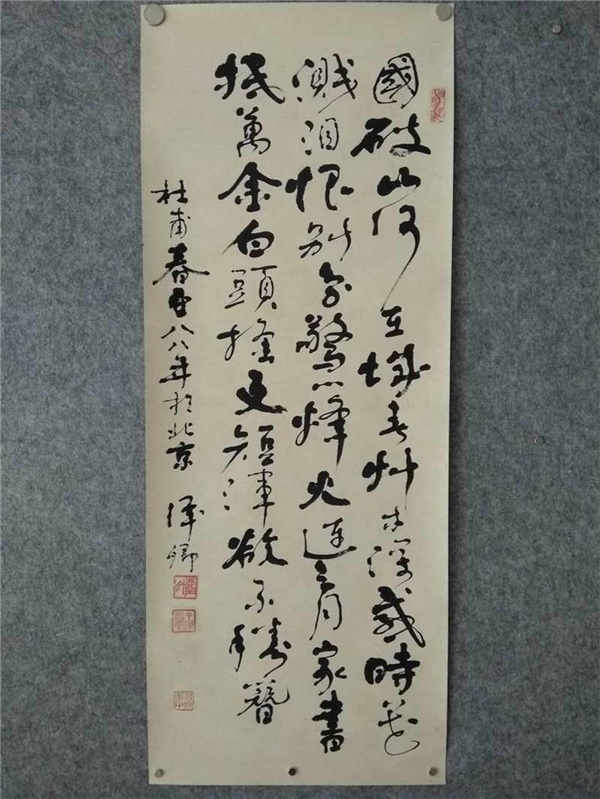 國破山河在城春艸木深感時花
濺泪恨别鸟驚心烽火連三月家書
抵萬金白頭搔更短渾欲不勝簪
杜甫春望八八年於北京